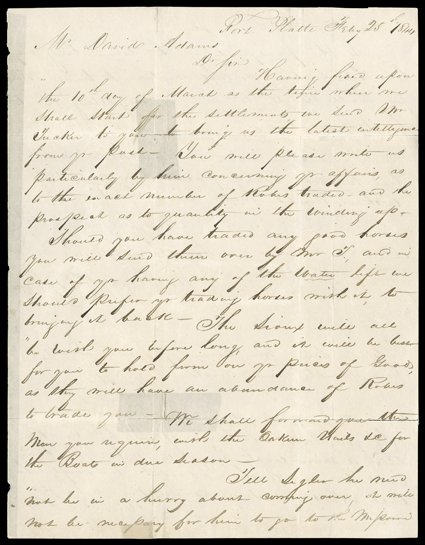 Fort Platte Feby 25th 1844
Mr David Adams
Dr Sir
Having fixed upon
the 10th day of March as the time when we
shall start for the settlements we send Mr
Tucker to you to bring us the latest intelligence
from yr Post - You will please write us
particularly by him concerning yr affairs, as
to the exact number of Robes traded and the
prospect as to quantity in the winding up.
Should you have traded any good horses
you will send them over by Mr T, and in
case of yr having any of the Water left we
should prefer yr trading horses with it to
bringing it back - The Sioux will all
be with you before long, and it will be best
for you to hold firm on yr prices of Goods,
as they will have an abundance of Robes
to trade you - We shall forward you the
Men you require, with the Oakum Nails &c for
the Boats in due season -
Tell Sigler he need
not be in a hurry about coming over, it will
not be necessary for him to go to the Missouri